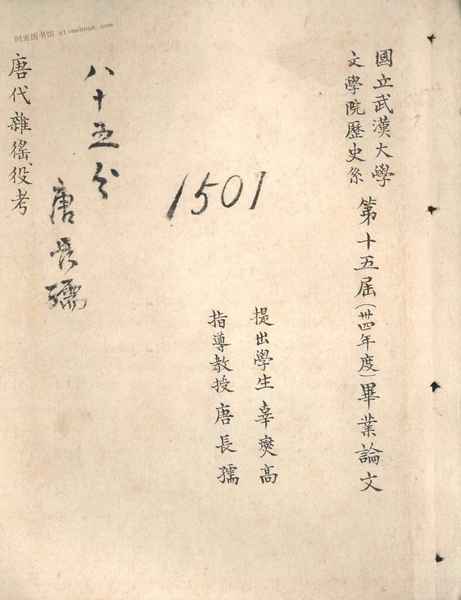 國立武漢大學
文學院歷史系
第十五屆(卅四年度)畢業論文
提出學生 辜燮高
指導教授 唐長孺
1501
八十五分
唐長孺
唐代雜徭役考